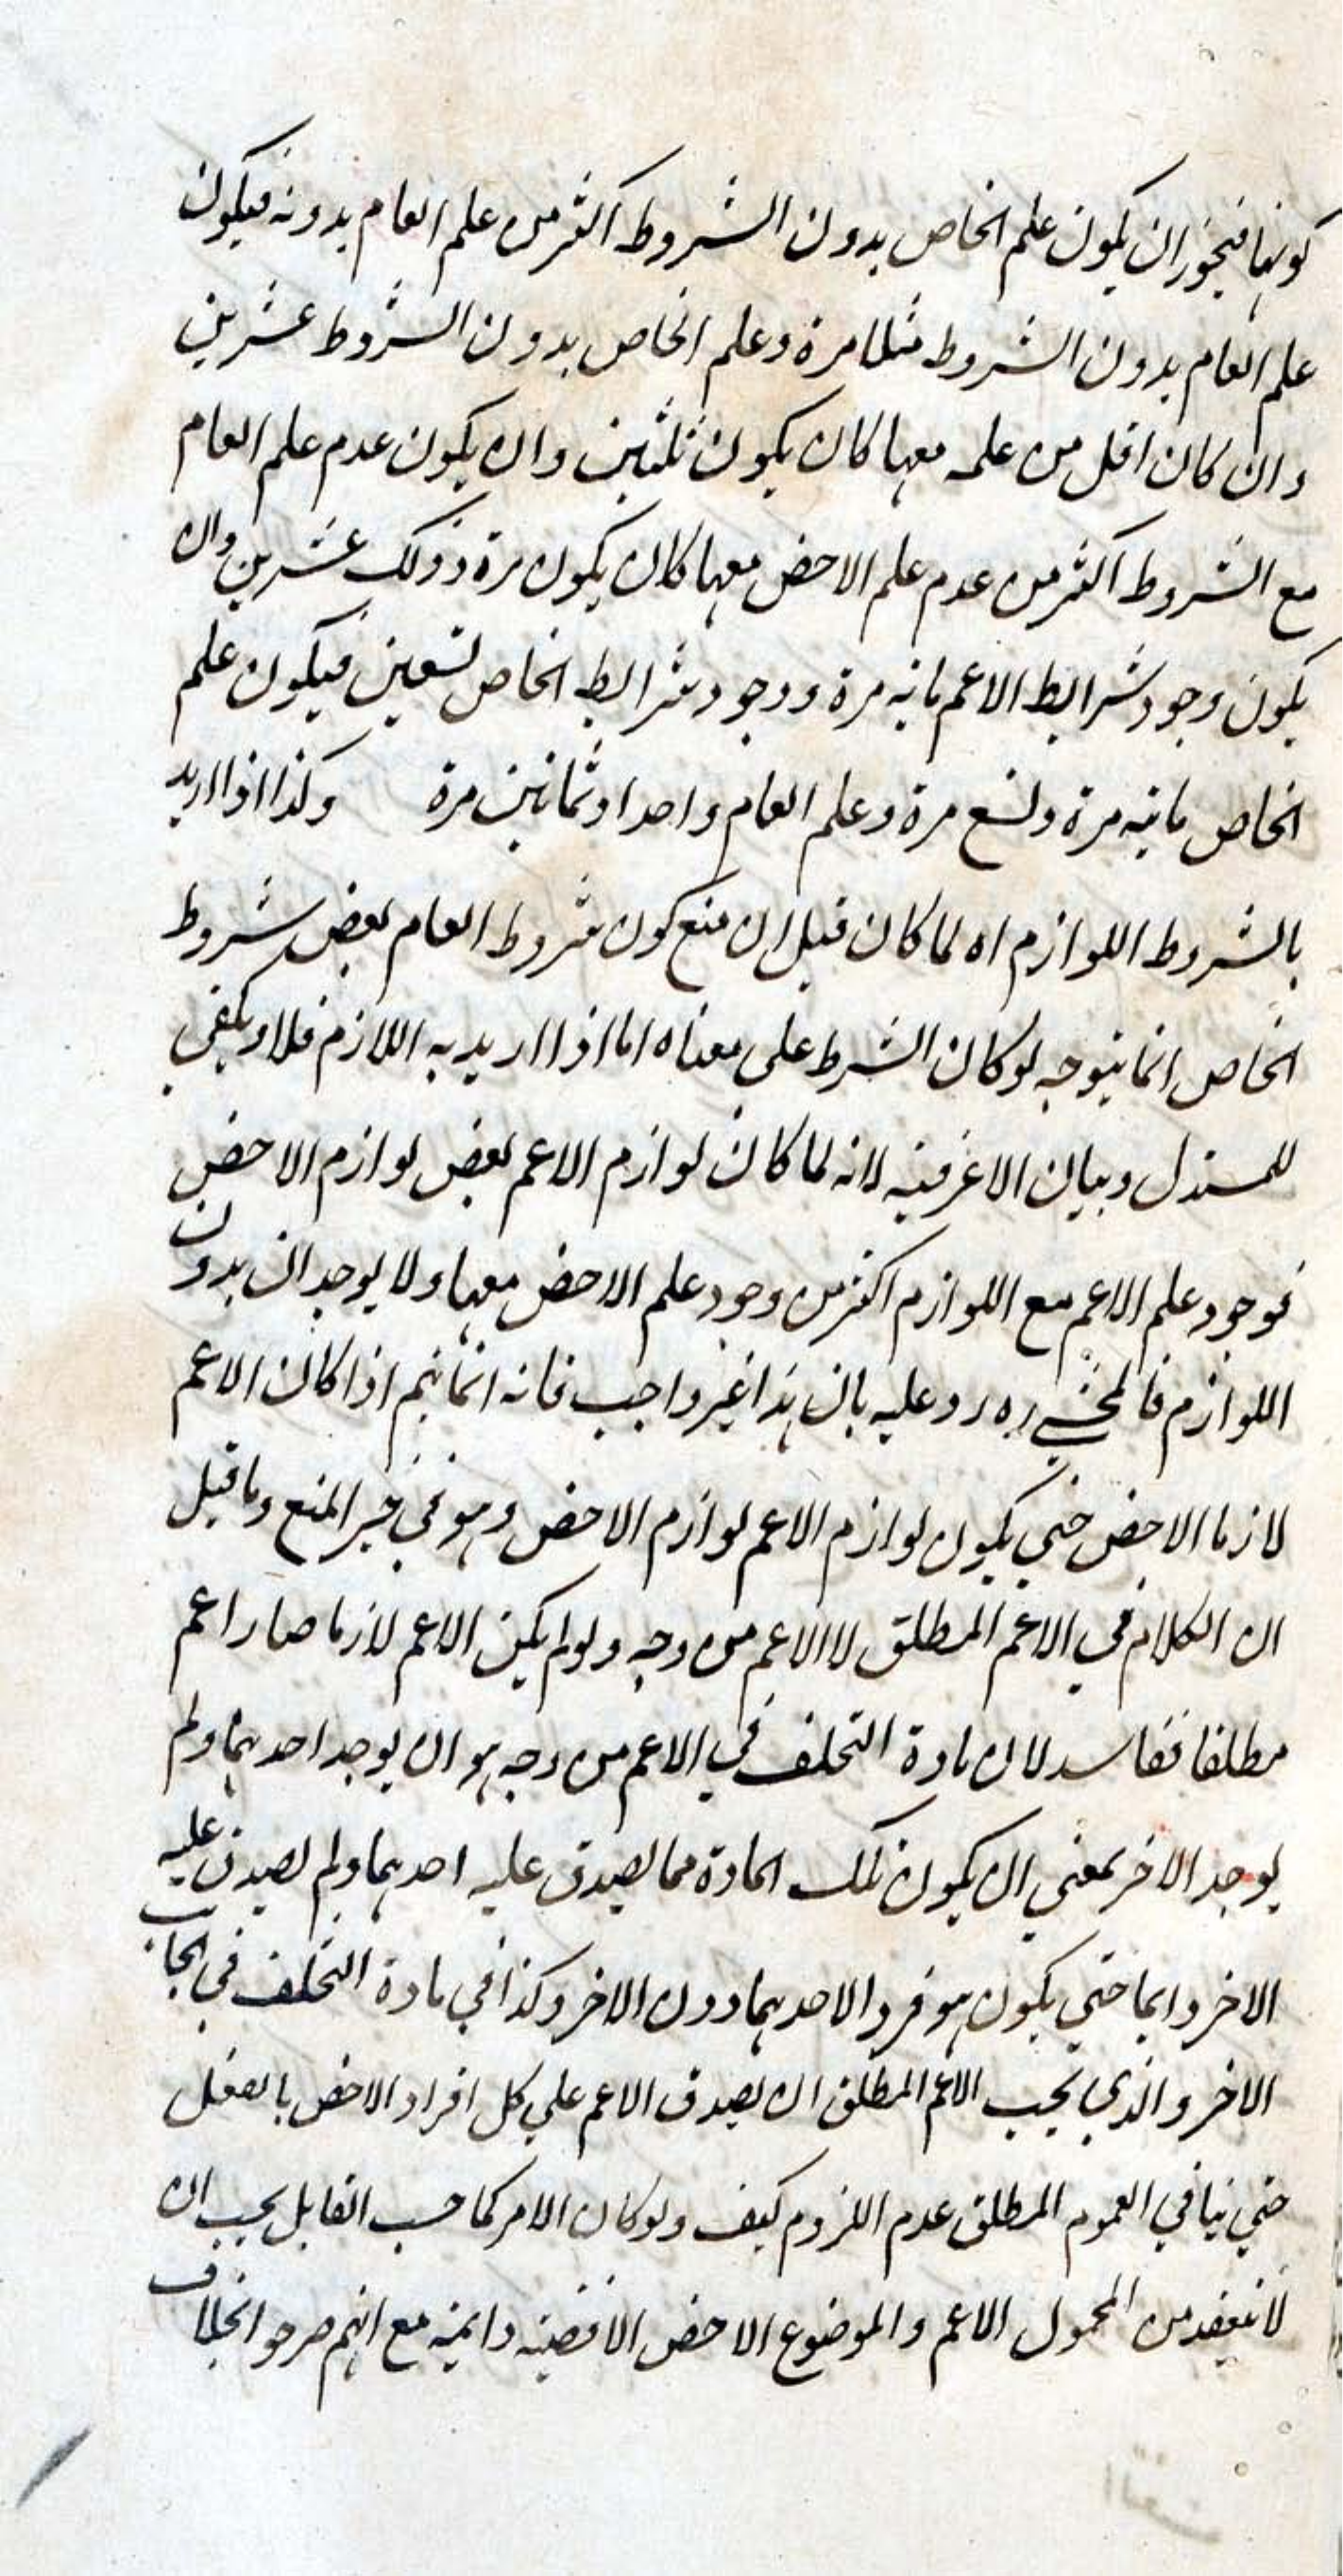 كونها فيجوز ان يكون علم الخاص بدون الشروط اكثر من علم العام بدونه فيكون
علم العام بدون الشروط مثلا مرة وعلم الخاص بدون الشروط عشرين
وان كان اقل من علمه معها كان يكون ثلثين وان يكون عدم علم العام
مع الشروط اكثر من عدم علم الاخص معها كان يكون مرة وذلك عشرين وان
يكون وجود شرايط الاعم ماية مرة ووجود شرايط الخاص تسعين فيكون علم
الخاص ماية مرة وتسع مرة وعلم العام واحدا وثمانين مرة وكذا اذا اريد
بالشروط اللوازم اه لما كان قيل ان منع كون شروط العام بعض شروط
الخاص انما يتوجه لو كان الشرط على معناه اما اذا اريد به اللازم فلا ويكفي
للمستدل وبيان الاعرفية لانه لما كان لوازم الاعم بعض لوازم الاخص
فوجود علم الاعم مع اللوازم اكثر من وجود علم الاخص معها ولا يوجد ان بدون
اللوازم فالمحشي ره رد عليه بان هذا غير واجب فانه انما يتم اذا كان الاعم
لازما الاخص حتي يكون لوازم الاعم لوازم الاخص وهو في حيز المنع وما قيل
ان الكلام في الاعم المطلق لا الاعم من وجه ولو لم يكن الاعم لازما صار اعم
مطلقا ففاسد لان مادة التخلف في الاعم من وجه هو ان يوجد احدهما ولم
يوجد الاخر بمعني ان يكون تلك المادة مما يصدق عليه احدهما ولم يصدق عليه
الاخر دايما حتي يكون هو فرد الاحدهما دون الاخر وكذا في مادة التخلف في الجانب
الاخر والذي يجب الاعم المطلق ان يصدق الاعم علي كل افراد الاخص بالفعل
حتي ينافي العموم المطلق عدم اللزوم كيف ولو كان الامر كما حسب القايل يجب ان
لا ينعقد من المحمول الاعم والموضوع الاخص الا قضية دايمية مع انهم صرحوا بخلاف